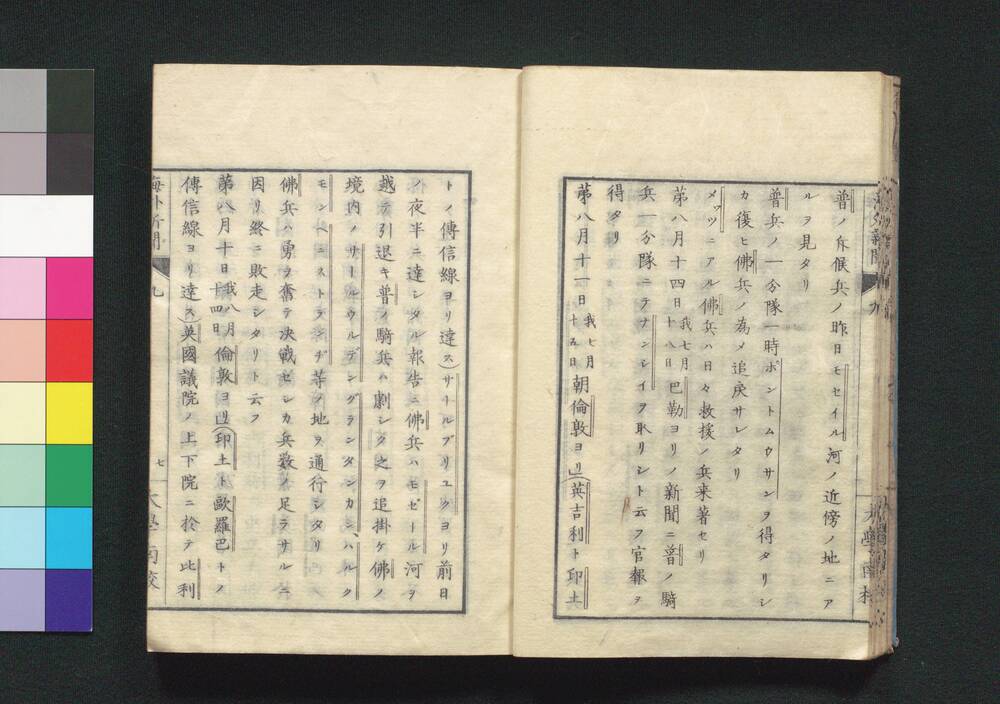 普ノ斥候兵ノ昨日モセイル河ノ近傍ノ地ニア
ルヲ見タリ
普兵ノ一分隊一時ポントムウサンヲ得タリシ
カ復ヒ佛兵ノ為メ追戻サレタリ
メッツニアル佛兵ハ日々救援ノ兵来著セリ
第八月十四日我七月十八日巴勒ヨリノ新聞ニ普ノ騎
兵一分隊ニテナンシイヲ取リシト云フ官報ヲ
得タリ
第八月十一日我七月十五日朝倫敦ヨリ英吉利ト印土
トノ傳信線ヨリ達ス)サールブリユクヨリ前日
ノ夜半ニ達シタル報告ニ佛兵ハモゼール河ヲ
越テ引退キ普ノ騎兵ハ劇シク之ヲ追掛ケ佛ノ
境内ノサールウルデングランタンカン、ハルク
モンヘニストランヂ等ノ地ヲ通行シタリ
佛兵ハ勇ヲ奮テ决戦セシカ兵数ノ足ラサルニ
因リ終ニ敗走シタリト云フ
第八月十日我八月十四日倫敦ヨリ(印土ト歐羅巴トノ
傳信線ヨリ達ス)英國議院ノ上下院ニ於テ比利
海外新聞
九
七
大學南校